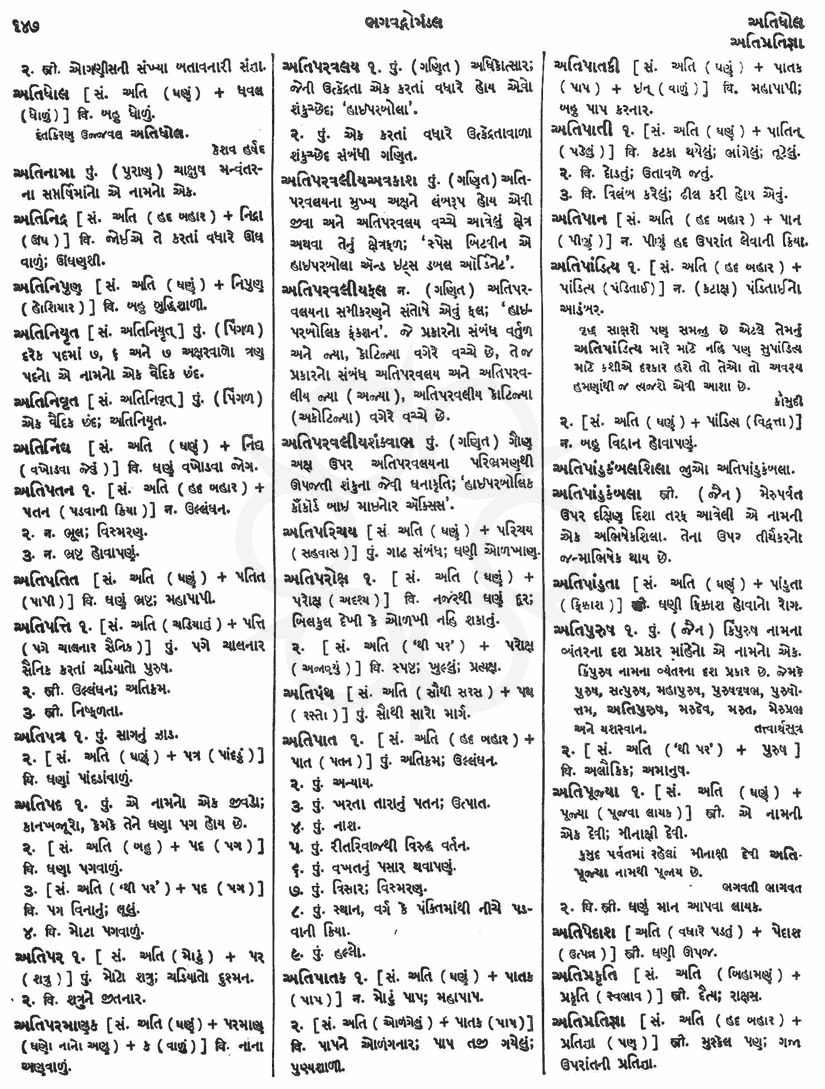 ૧૪૭
ભગવદ્ગોમંડલ
અતિધોલ
અતિપ્રતિજ્ઞા
૨. સ્ત્રી. ઓગણીસની સંખ્યા બતાવનારી સંજ્ઞા.
અતિધોલ [ સં. અતિ ( ઘણું ) + ધવલ
( ધોળું ) ] વિ. બહુ ધોળું.
દંતકિરણ ઉજ્જ્વલ અતિધોલ.
કેશવ હર્ષદ
અતિનામા પું. ( પુરાણ ) ચાક્ષુષ મન્વંતર-
ના સપ્તર્ષિમાંનો એ નામનો એક.
અતિનિદ્ર [ સં. અતિ ( હદ બહાર ) + નિદ્રા
( ઊંઘ ) ] વિ. જોઈએ તે કરતાં વધારે ઊંઘ
વાળું; ઊંઘણશી.
અતિનિપુણ [ સં. અતિ ( ઘણું ) + નિપુણ
( હોશિયાર ) ] વિ. બહુ બુદ્ધિશાળી.
અતિનિચૃત [ સં. અતિનિચૃત્ ] પું. ( પિંગળ )
દરેક પદમાં ૭, ૬ અને ૭ અક્ષરવાળો ત્રણ
પદનો એ નામનો એક વૈદિક છંદ.
અતિનિવૃત [ સં. અતિનિવૃત્ ] પું. ( પિંગળ )
એક વૈદિક છંદ; અતિનિચૃત.
અતિનિંદ્ય [ સં. અતિ ( ઘણું ) + નિંદ્ય
( વખોડવા જેવું ) ] વિ. ઘણું વખોડવા જોગ.
અતિપતન ૧. [ સં. અતિ ( હદ બહાર ) +
પતન ( પડવાની ક્રિયા ) ] ન. ઉલ્લંઘન.
૨. ન. ભૂલ; વિસ્મરણ.
૩. ન. ભ્રષ્ટ હોવાપણું.
અતિપતિત [ સં. અતિ ( ઘણું ) + પતિત
( પાપી ) ] વિ. ઘણું ભ્રષ્ટ; મહાપાપી.
અતિપત્તિ ૧. [ સં. અતિ ( ચડિયાતું ) + પત્તિ
( પગે ચાલનાર સૈનિક ) ] પું. પગે ચાલનાર
સૈનિક કરતાં ચડિયાતો પુરુષ.
૨. સ્ત્રી. ઉલ્લંઘન; અતિક્રમ.
૩. સ્ત્રી. નિષ્ફળતા.
અતિપત્ર ૧. પું. સાગનું ઝાડ.
૨. [ સં. અતિ ( ઘણું ) + પત્ર ( પાંદડું ) ]
વિ. ઘણાં પાંદડાંવાળું.
અતિપદ ૧. પું. એ નામનો એક જીવડો;
કાનખજૂરો, કેમકે તેને ઘણા પગ હોય છે.
૨. [ સં. અતિ ( બહુ ) + પદ ( પગ ) ]
વિ. ઘણા પગવાળું.
૩. [ સં. અતિ ( ‘થી પર’ ) + પદ ( પગ ) ]
વિ. પગ વિનાનું; લૂલું.
૪. વિ. મોટા પગવાળું.
અતિપર ૧. [ સં. અતિ ( મોટું ) + પર
( શત્રુ ) ] પું. મોટો શત્રુ; ચડિયાતો દુશ્મન.
૨. વિ. શત્રુને જીતનાર.
અતિપરમાણુક [ સં. અતિ ( ઘણું ) + પરમાણુ
( ઘણો નાનો અણુ ) + ક ( વાળું ) ] વિ. નાના
અણુવાળું.
અતિપરવલય ૧. પું. ( ગણિત ) અધિકાત્સાર;
જેની ઉત્કેંદ્રતા એક કરતાં વધારે હોય એવો
શંકુચ્છેદ; ‘હાઇપરબોલા’.
૨. પું. એક કરતાં વધારે ઉત્કેંદ્રતાવાળા
શંકુચ્છેદ સંબંધી ગણિત.
અતિપરવલીયઅવકાશ પું. ( ગણિત ) અતિ-
પરવલયના મુખ્ય અક્ષને લંબરૂપ હોય એવી
જીવા અને અતિપરવલય વચ્ચે આવેલું ક્ષેત્ર
અથવા તેનું ક્ષેત્રફળ; ‘સ્પેસ બિટવીન એ
હાઇપરબોલા એન્ડ ઇટ્સ ડબલ ઑર્ડિનેટ’.
અતિપરવલીયફલ ન. ( ગણિત ) અતિપર-
વલયના સમીકરણને સંતોષે એવું ફલ; ‘હાઇ-
પરબોલિક ફંક્શન’. જે પ્રકારનો સંબંધ વર્તુળ
અને જ્યા, કોટિજ્યા વગેરે વચ્ચે છે, તેજ
પ્રકારનો સંબંધ અતિપરવલય અને અતિપરવ-
લીય જ્યા ( અજ્યા ), અતિપરવલીય કોટિજ્યા
( અકોટિજ્યા ) વગેરે વચ્ચે છે.
અતિપરવલીયશંક્વાભ પું. ( ગણિત ) ગૌણ
અક્ષ ઉપર અતિપરવલયના પરિભ્રમણથી
ઉપજતી શંકુના જેવી ઘનાકૃતિ; ‘હાઇપરબોલિક
કૉંકૉર્ડ બાઇ માઇનોર ઍક્સિસ’.
અતિપરિચય [ સં. અતિ ( ઘણું ) + પરિચય
( સહવાસ ) ] પું. ગાઢ સંબંધ; ઘણી ઓળખાણ.
અતિપરોક્ષ ૧. [ સં. અતિ ( ઘણું ) +
પરોક્ષ ( અદૃશ્ય ) ] વિ. નજરથી ઘણું દૂર;
બિલકુલ દેખી કે ઓળખી નહિ શકાતું.
૨. [ સં. અતિ ( ‘થી પર’ ) + પરોક્ષ
( અજાણ્યું ) ] વિ. સ્પષ્ટ; ખુલ્લું; પ્રત્યક્ષ.
અતિપંથ [ સં. અતિ ( સૌથી સરસ ) + પથ
( રસ્તો ) ] પું. સૌથી સારો માર્ગ.
અતિપાત ૧. [ સં. અતિ ( હદ બહાર ) +
પાત ( પતન ) ] પું. અતિક્રમ; ઉલ્લંઘન.
૨. પું. અન્યાય.
૩. પું. ખરતા તારાનું પતન; ઉત્પાત.
૪. પું. નાશ.
૫. પું. રીતરિવાજથી વિરુદ્ધ વર્તન.
૬. પું. વખતનું પસાર થવાપણું.
૭. પું. વિસાર; વિસ્મરણ.
૮. પું. સ્થાન, વર્ગ કે પંક્તિમાંથી નીચે પડ-
વાની ક્રિયા.
૯. પું. હલ્લો.
અતિપાતક ૧. [ સં. અતિ ( ઘણું ) + પાતક
( પાપ ) ] ન. મોટું પાપ; મહાપાપ.
૨. [ સં. અતિ ( ઓળંગેલું ) + પાતક ( પાપ ) ]
વિ. પાપને ઓળંગનાર; પાપ તજી ગયેલું;
પુણ્યશાળી.
અતિપાતકી [ સં. અતિ ( ઘણું ) + પાતક
( પાપ ) + ઇન્ ( વાળું ) ] વિ. મહાપાપી;
બહુ પાપ કરનાર.
અતિપાતી ૧. [ સં. અતિ ( ઘણું ) + પાતિન્
( પડેલું ) ] વિ. કટકા થયેલું; ભાંગેલું; તૂટેલું.
૨. વિ. દોડતું; ઉતાવળે જતું.
૩. વિ. વિલંબ કરેલું; ઢીલ કરી હોય એવું.
અતિપાન [ સં. અતિ ( હદ બહાર ) + પાન
( પીણું ) ] ન. પીણું હદ ઉપરાંત લેવાની ક્રિયા.
અતિપાંડિત્ય ૧. [ સં. અતિ ( હદ બહાર ) +
પાંડિત્ય ( પંડિતાઈ ) ] ન. ( કટાક્ષ ) પંડિતાઈનો
આડંબર.
વૃદ્ધ સાક્ષરો પણ સમજુ છે એટલે તેમનું
અતિપાંડિત્ય મારે માટે નહિ પણ સુપાંડિત્ય
માટે કશીએ દરકાર હશે તો તેઓ તો અવશ્ય
હમણાંથી જ ત્યજશે એવી આશા છે.
કૌમુદી
૨. [ સં. અતિ ( ઘણું ) + પાંડિત્ય ( વિદ્વત્તા ) ]
ન. બહુ વિદ્વાન હોવાપણું.
અતિપાંડુકંબલશિલા જુઓ અતિપાંડુકંબલા.
અતિપાંડુકંબલા સ્ત્રી. ( જૈન ) મેરુપર્વત
ઉપર દક્ષિણ દિશા તરફ આવેલી એ નામની
એક અભિષેકશિલા. તેના ઉપર તીર્થંકરનો
જન્માભિષેક થાય છે.
અતિપાંડુતા [ સં. અતિ ( ઘણું ) + પાંડુતા
( ફિક્કાશ ) ] સ્ત્રી. ઘણી ફિક્કાશ હોવાનો રોગ.
અતિપુરુષ ૧. પું. ( જૈન ) કિંપુરુષ નામના
વ્યંતરના દશ પ્રકાર માંહેનો એ નામનો એક.
કિંપુરુષ નામના વ્યંતરના દશ પ્રકાર છે. જેમકે
પુરુષ, સત્પુરુષ, મહાપુરુષ, પુરુષવૃષભ, પુરુષો-
ત્તમ, અતિપુરુષ, મરુદેવ, મરુત, મેરુપ્રભ
અને યશસ્વાન.
તત્ત્વાર્થસૂત્ર
૨. [ સં. અતિ ( ‘થી પર’ ) + પુરુષ ]
વિ. અલૌકિક; અમાનુષ.
અતિપૂજ્યા ૧. [ સં. અતિ ( ઘણું ) +
પૂજ્યા ( પૂજવા લાયક ) ] સ્ત્રી. એ નામની
એક દેવી; મીનાક્ષી દેવી.
કુમુદ પર્વતમાં રહેલાં મીનાક્ષી દેવી અતિ-
પૂજ્યા નામથી પૂજાય છે.
ભગવતી ભાગવત
૨. વિ. સ્ત્રી. ઘણું માન આપવા લાયક.
અતિપેદાશ [ અતિ ( વધારે પડતું ) + પેદાશ
( ઉત્પન્ન ) ] સ્ત્રી. ઘણી ઊપજ.
અતિપ્રકૃતિ [ સં. અતિ ( બિહામણું ) +
પ્રકૃતિ ( સ્વભાવ ) ] સ્ત્રી. દૈત્ય; રાક્ષસ.
અતિપ્રતિજ્ઞા [ સં. અતિ ( હદ બહાર ) +
પ્રતિજ્ઞા ( પણ ) ] સ્ત્રી. મુશ્કેલ પણ; ગજા
ઉપરાંતની પ્રતિજ્ઞા.